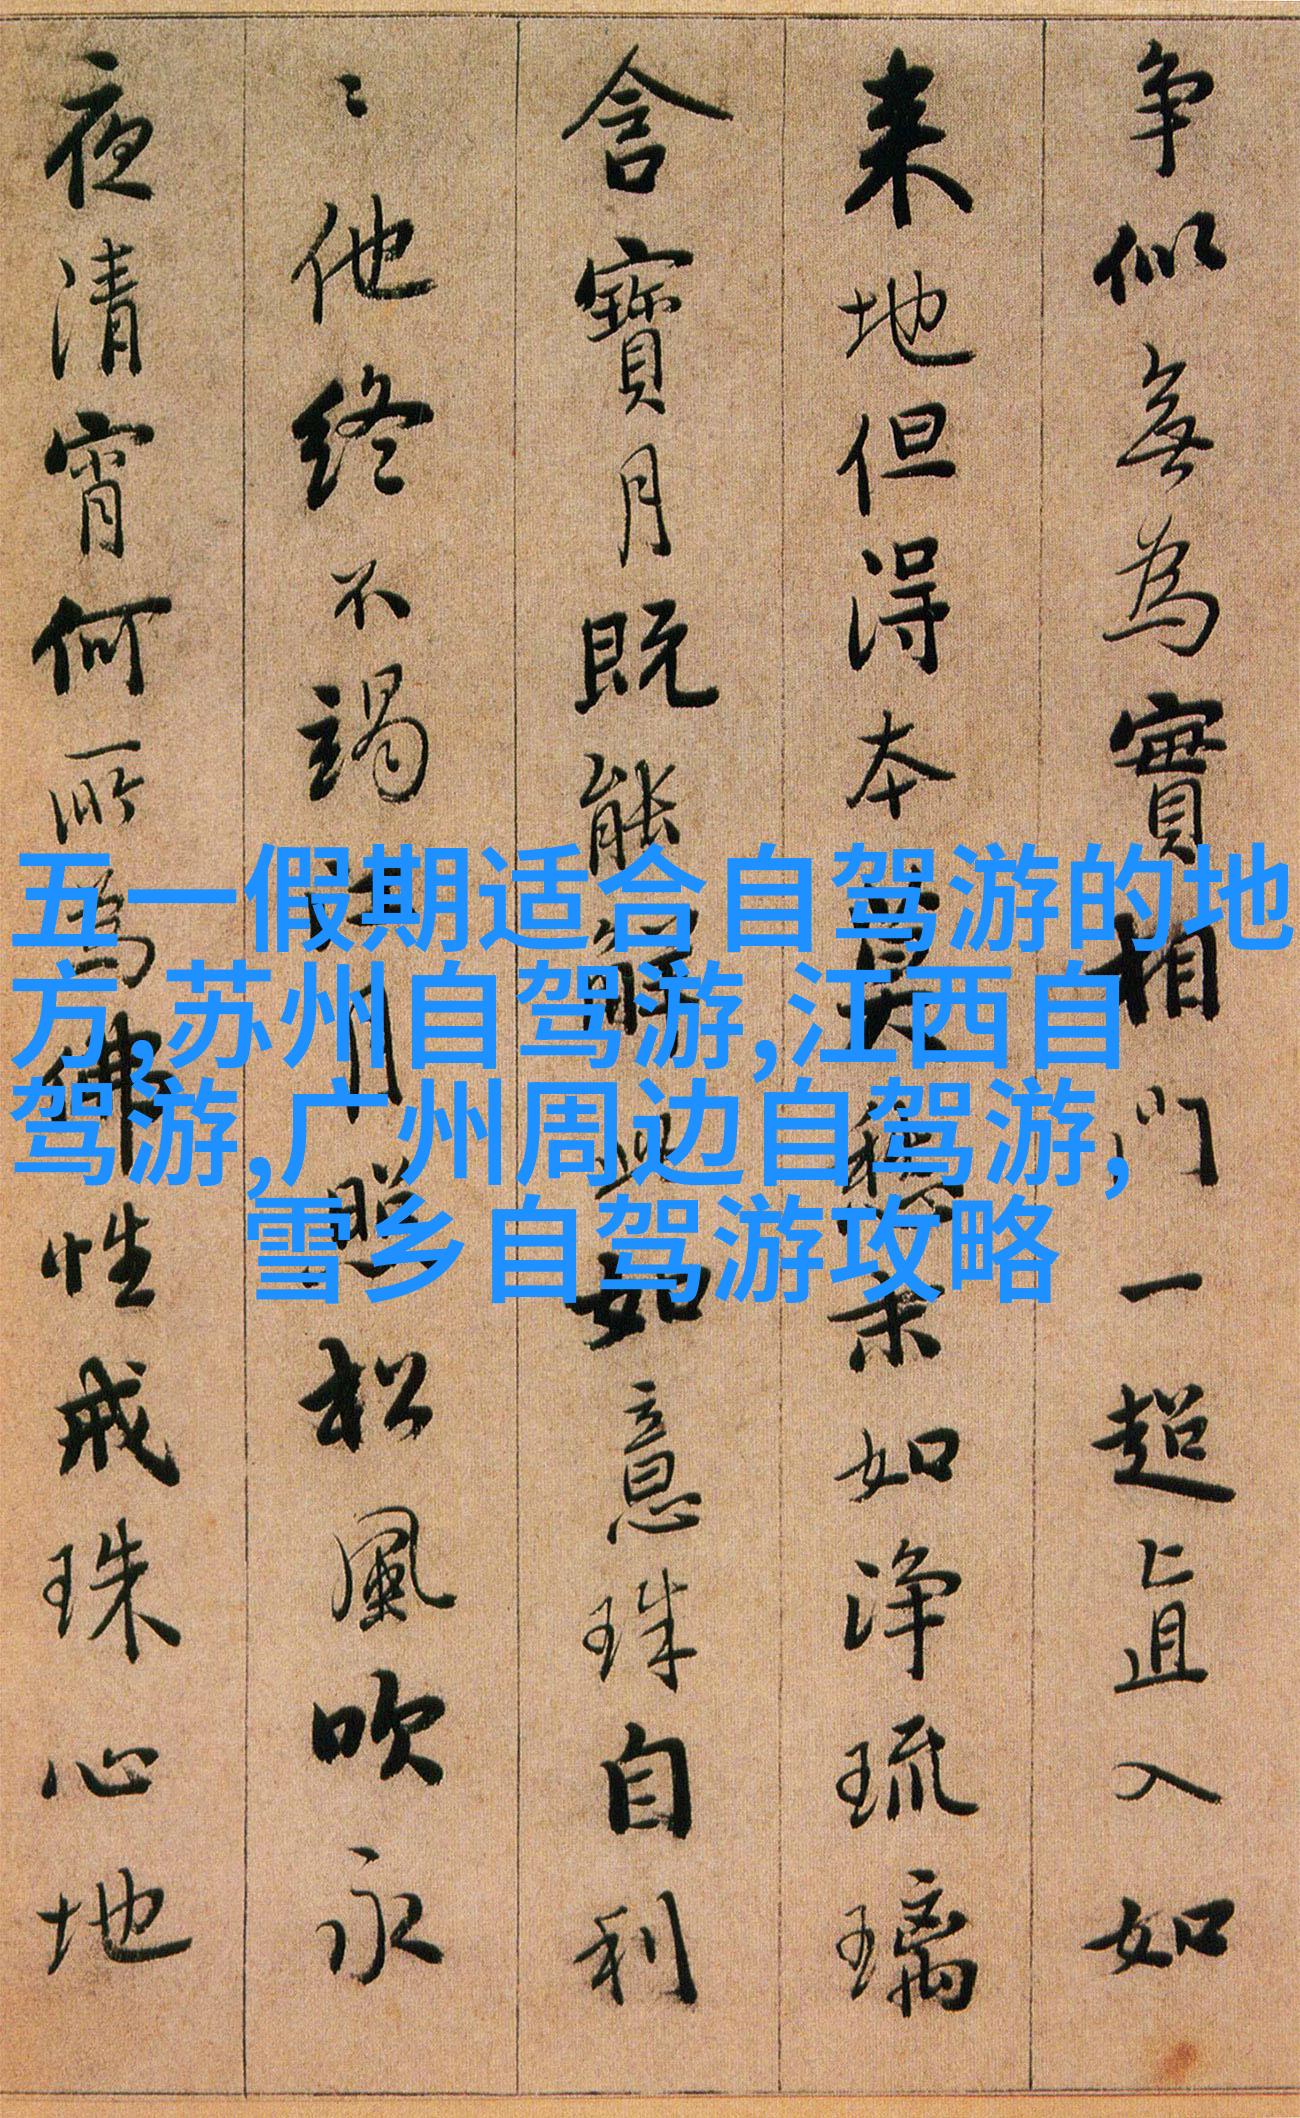 争似無為實相門一超直入如
来地但得本莫愁末如净琉璃
含寶月既能解此如意珠自利
〻他終不竭江月照松風吹永
夜清宵何所為佛性戒珠心地
五一假期适合自驾游的地
方,苏州自驾游,江西自
驾游,广州周边自驾游,
雪乡自驾游攻略